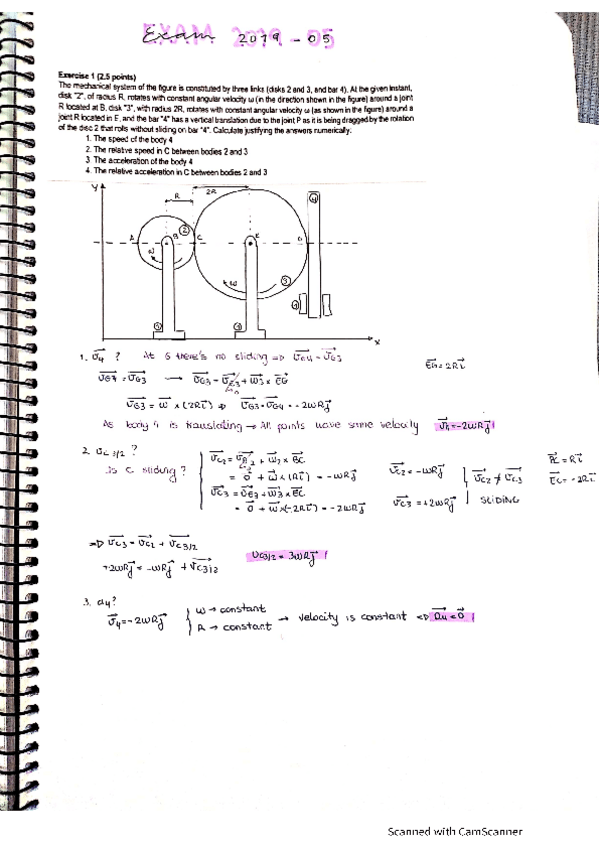 EXAM 2019-05
Exam 2019-05
Exercise 1 (2,5 points)
The mechanical system of the figure is constituted by three links (disks 2 and 3, and bar 4). At the given instant,
disk "2", of radius R, rotates with constant angular velocity ω (in the direction shown in the figure) around a joint
R located at B, disk "3", with radius 2R, rotates with constant angular velocity ω (as shown in the figure) around a
joint R located in E, and the bar "4" has a vertical translation due to the joint P as it is being dragged by the rotation
of the disc 2 that rolls without sliding on bar "4". Calculate justifying the answers numerically:
1. The speed of the body 4
2. The relative speed in C between bodies 2 and 3
3 The acceleration of the body 4
4. The relative acceleration in C between bodies 2 and 3
Y
R
2R
4
A
B
2
C
E
ω
ω
3
x
1. v4 ? At G there's no sliding => vG4 = vG3
EG = 2Ri
vG4 = vG3 → vG3 = vE3 + ω3 × EG
vG3 = ω × (2Ri) => vG3 = vG4 = -2ωRj
As body 4 is translating → All points have same velocity v4 = -2ωRj
2. vC3/2 ?
is C sliding?
vC2 = vB2 + ω2 × BC
= 0 + ω × (Ri) = -ωRj
vC3 = vE3 + ω3 × EC
= 0 + ω × (-2Ri) = -2ωRj
vC2 = -ωRj
vC3 = +2ωRj
vC2 ≠ vC3
SLIDING
BC = Ri
EC = -2Ri
=> vC3 = vC2 + vC3/2
+2ωRj = -ωRj + vC3/2
vC3/2 = 3ωRj
3. a4?
v4 = -2ωRj
ω → constant
R → constant
→ velocity is constant => a4 = 0
Scanned with CamScanner